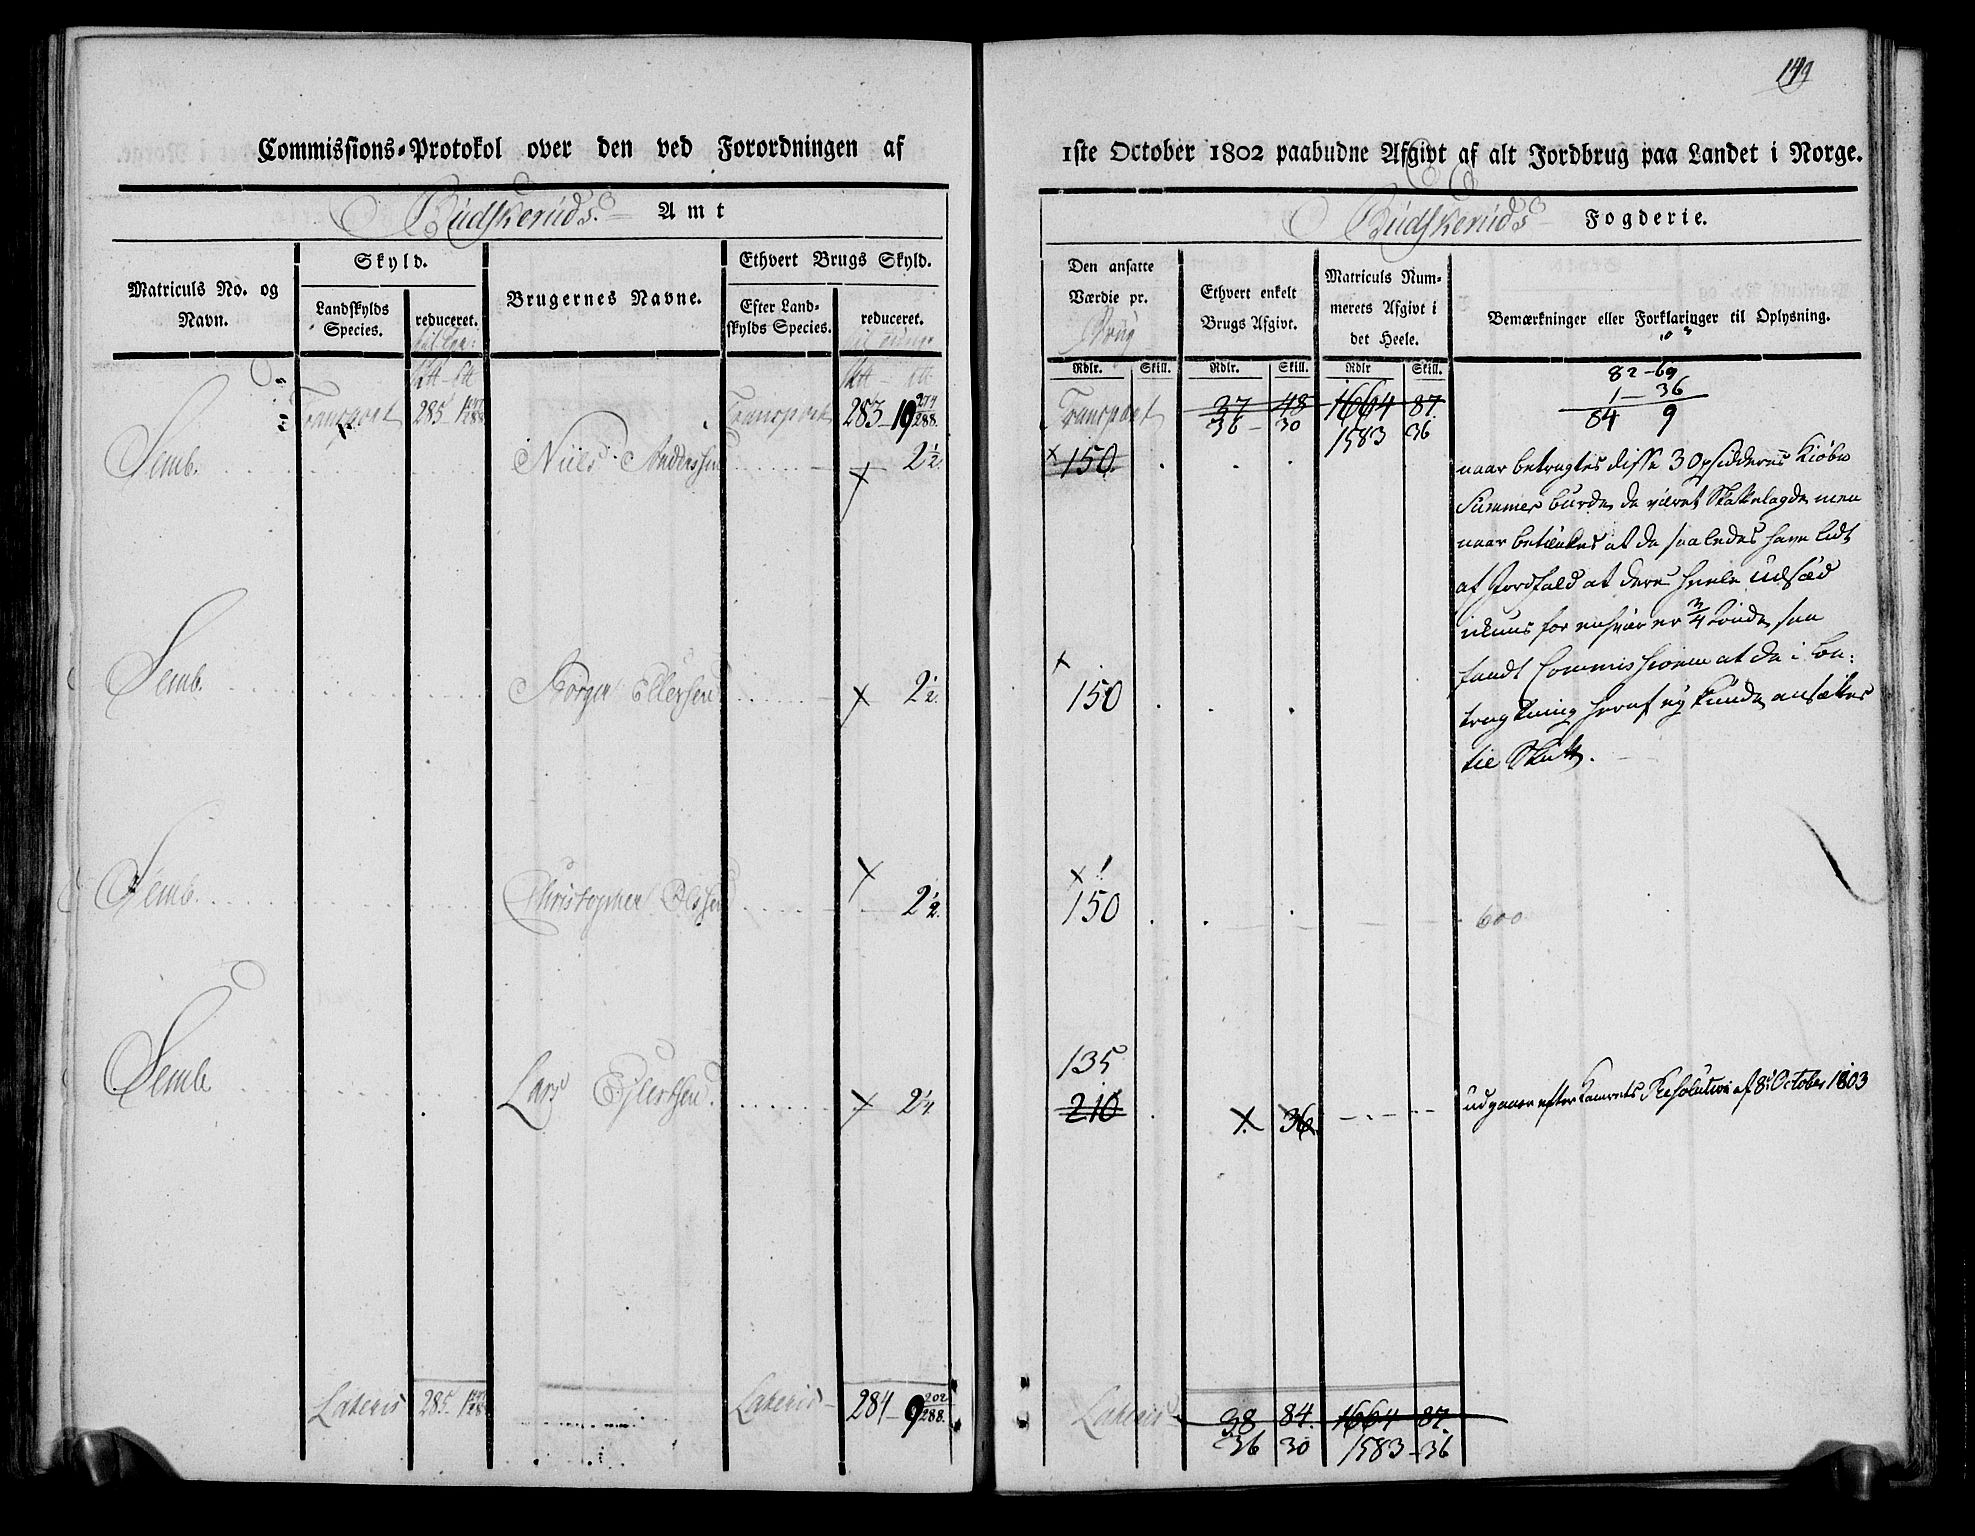 149
Commissions-Protokol over den ved Forordningen af
1ste October 1802 paabudne Afgivt af alt Jordbrug paa Landet i Norge.
Budskeruds Amt
Budskeruds Fogderie.
Matriculs No. og Navn.
Skyld.
Landskylds Species.
reduceret.
Brugernes Navne.
Ethvert Brugs Skyld.
Efter Landskylds Species.
reduceret.
Den ansatte Værdie pr. Brug
Ethvert enkelt Brugs Afgivt.
Matriculs Nummerets Afgivt i det Heele.
Bemærkninger eller Forklaringer til Oplysning.
Rdlr. Skill. Rdlr. Skill. Rdlr Skill.
82-69
1-36
84 9
Transport 285 Transport 283-10 274/288 Transport 37 48 1664 87
36-30 1583 36
Semb. Niels Anderssen 2½ 150
naar betragtes disse 3 Opsidderes Kiøbe
Summer burde de været Skattelagde men
naar betænkes at de saaledes have lidt
af Jordfald at deres heele udsæd
ikuns for enhver er ¾ tønde, saa
fandt Commissionen at de i be-
tragtning heraf ej kunde ansættes
til Skatt.
Semb. Børger Ellersen 2½ 150
Semb. Christopher Olssen 2½ 150 600
Semb Lars Ejlertsen. 2¼ 135
210 1. 36
udgaaer efter Camrets Resolution af 8de October 1803
Lateris 285 Lateris 284-9 202/288 Lateris 38 84 1664-87
36 30 1583-36